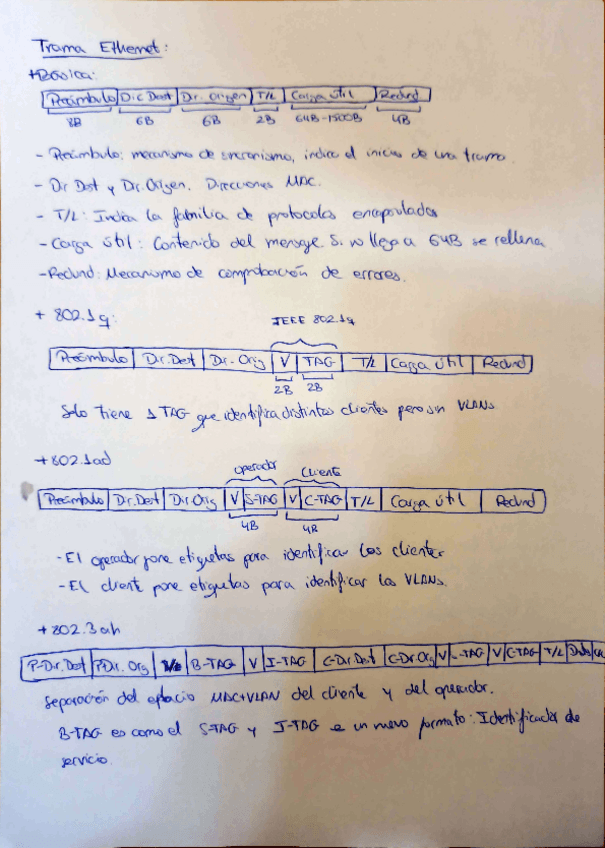 Trama Ethernet:
+Básica:
Preámbulo Dir. Dest Dir. Origen T/L Carga útil Redund
8B 6B 6B 2B 64B-1500B 4B
- Preámbulo: mecanismo de sincronismo, indica el inicio de una trama.
- Dir Dest y Dir. Origen. Direcciones MAC.
- T/L: Indica la familia de protocolos encapsulados
- Carga útil: Contenido del mensaje. Si no llega a 64B se rellena
- Redund: Mecanismo de comprobación de errores.
+ 802.1q:
IEEE 802.1q
Preámbulo Dir. Dest Dir. Orig V TAG T/L Carga útil Redund
2B 2B
Solo tiene 1 TAG que identifica distintos clientes pero sin VLANs
+802.1ad
operador cliente
Preámbulo Dir. Dest Dir. Orig V S-TAG V C-TAG T/L Carga útil Redund
4B 4B
- El operador pone etiquetas para identificar los clientes
- El cliente pone etiquetas para identificar las VLANs.
+802.3ah
P-Dir. Dest P-Dir. Org B-TAG V I-TAG C-Dir. Dest C-Dir. Org V -TAG V C-TAG T/L
Separación del espacio MAC+VLAN del cliente y del operador.
B-TAG es como el S-TAG y I-TAG e un nuevo formato: Identificador de
servicio.